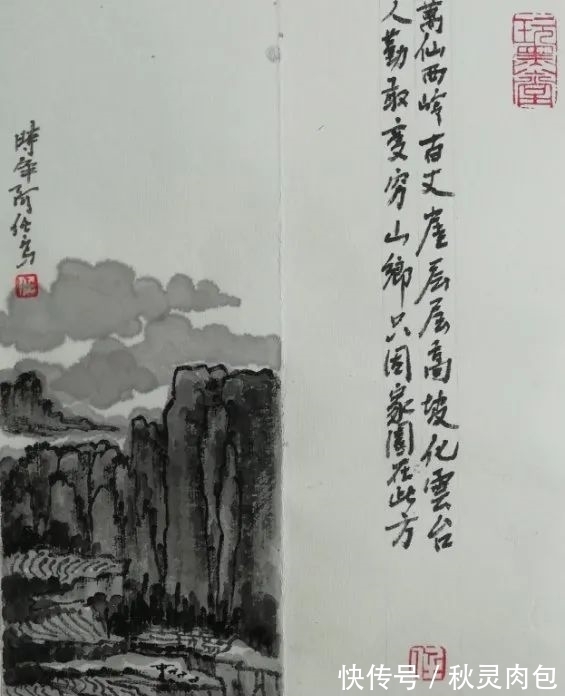 玩墨堂
萬仙西岭百丈崖层层高坡化雲台
人勤敢变穷山鄉只因家園在此方
任
時年阿任写
任
快传号 / 秋灵肉包